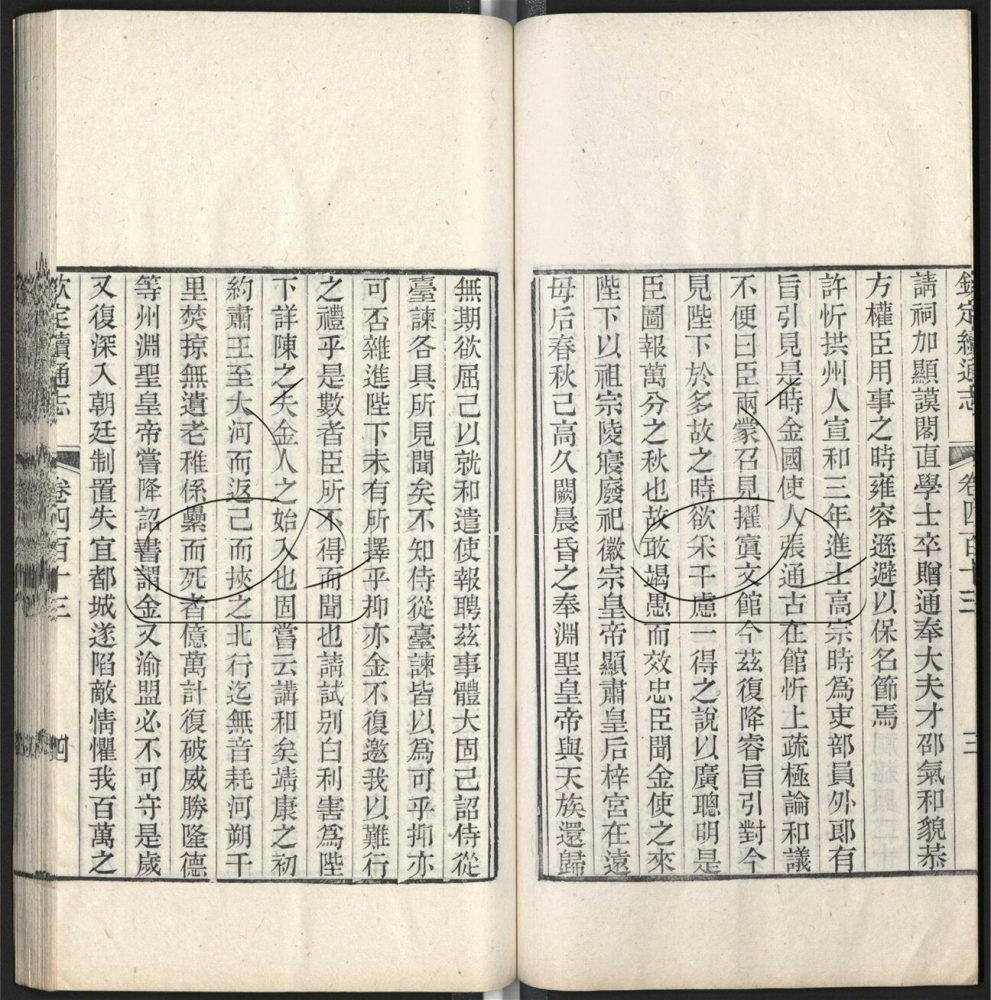 欽定續通志 卷四百十三 三
請祠加顯謨閣直學士卒贈通奉大夫才邵氣和貌恭
方權臣用事之時雍容遜避以保名節焉
許忻拱州人宣和三年進士高宗時爲吏部員外郎有
旨引見是時金國使人張通古在館忻上疏極論和議
不便曰臣兩蒙召見擢寘文館今茲復降睿旨引對今
見陛下於多故之時欲采千慮一得之說以廣聰明是
臣圖報萬分之秋也故敢竭愚而效忠臣聞金使之來
陛下以祖宗陵寢廢祀徽宗皇帝顯肅皇后梓宮在遠
母后春秋已高久闕晨昏之奉淵聖皇帝與天族還歸
無期欲屈己以就和遣使報聘茲事體大固已詔侍從
臺諫各具所見聞矣不知侍從臺諫皆以爲可乎抑亦
可否雜進陛下未有所擇乎抑亦金不復邀我以難行
之禮乎是數者臣所不得而聞也請試別白利害爲陛
下詳陳之夫金人之始入也固嘗云講和矣靖康之初
約肅王至大河而返已而挾之北行迄無音耗河朔千
里焚掠無遺老稚係纍而死者億萬計復破威勝隆德
等州淵聖皇帝嘗降詔書謂金又渝盟必不可守是歲
又復深入朝廷制置失宜都城遂陷敵情懼我百萬之
欽定續通志 卷四百十三 四